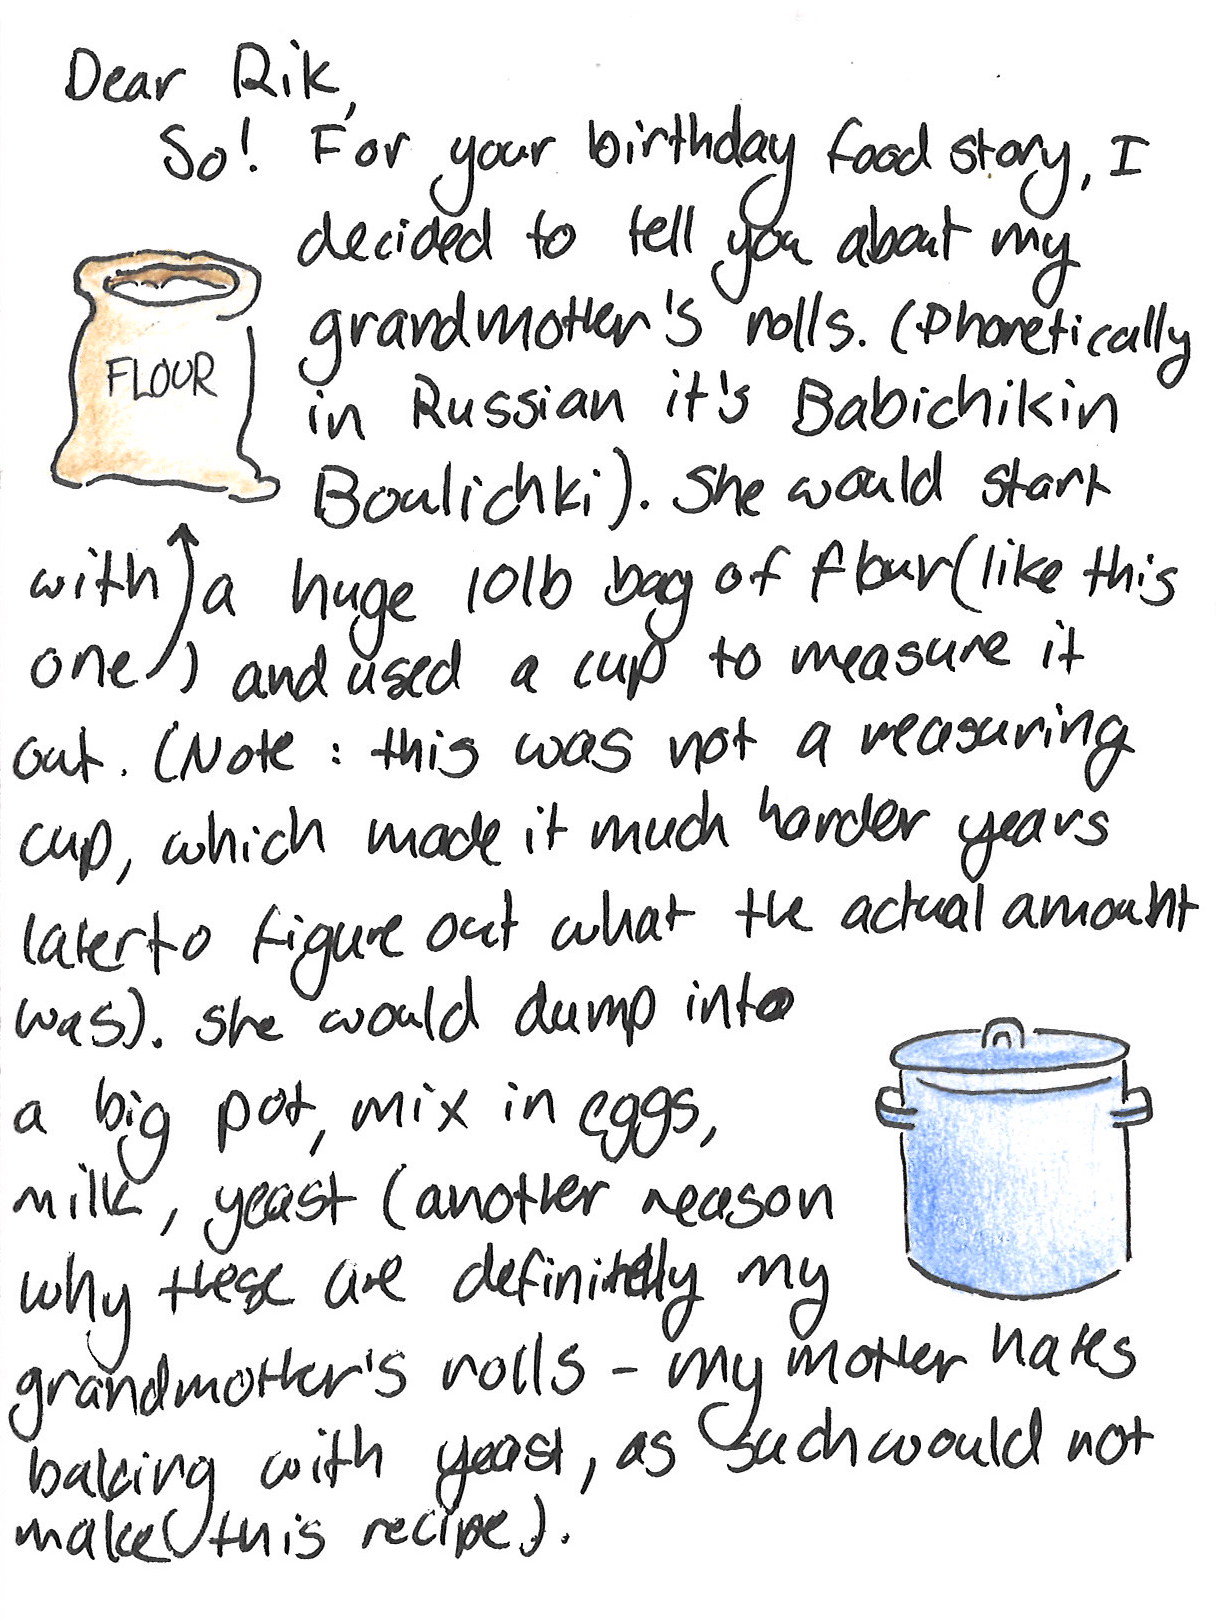 Dear Rik,
So! For your birthday food story, I
decided to tell you about my
grandmother's rolls. (Phonetically
in Russian it's Babichikin
Boulichki). She would start
FLOUR
with a huge 10lb bag of flour (like this
one) and used a cup to measure it
out. (Note: this was not a measuring
cup, which made it much harder years
later to figure out what the actual amount
was). She would dump into
a big pot, mix in eggs,
milk, yeast (another reason
why these are definitely my
grandmother's rolls - my mother hates
baking with yeast, as such would not
make this recipe).